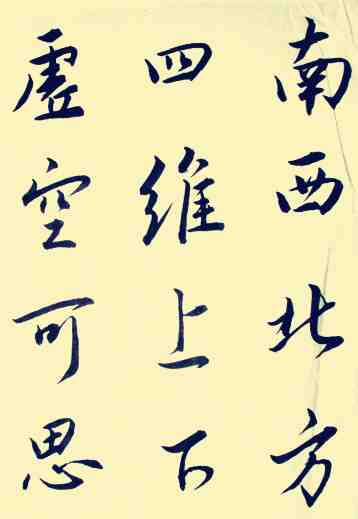 南西北方
四維上下
虛空可思